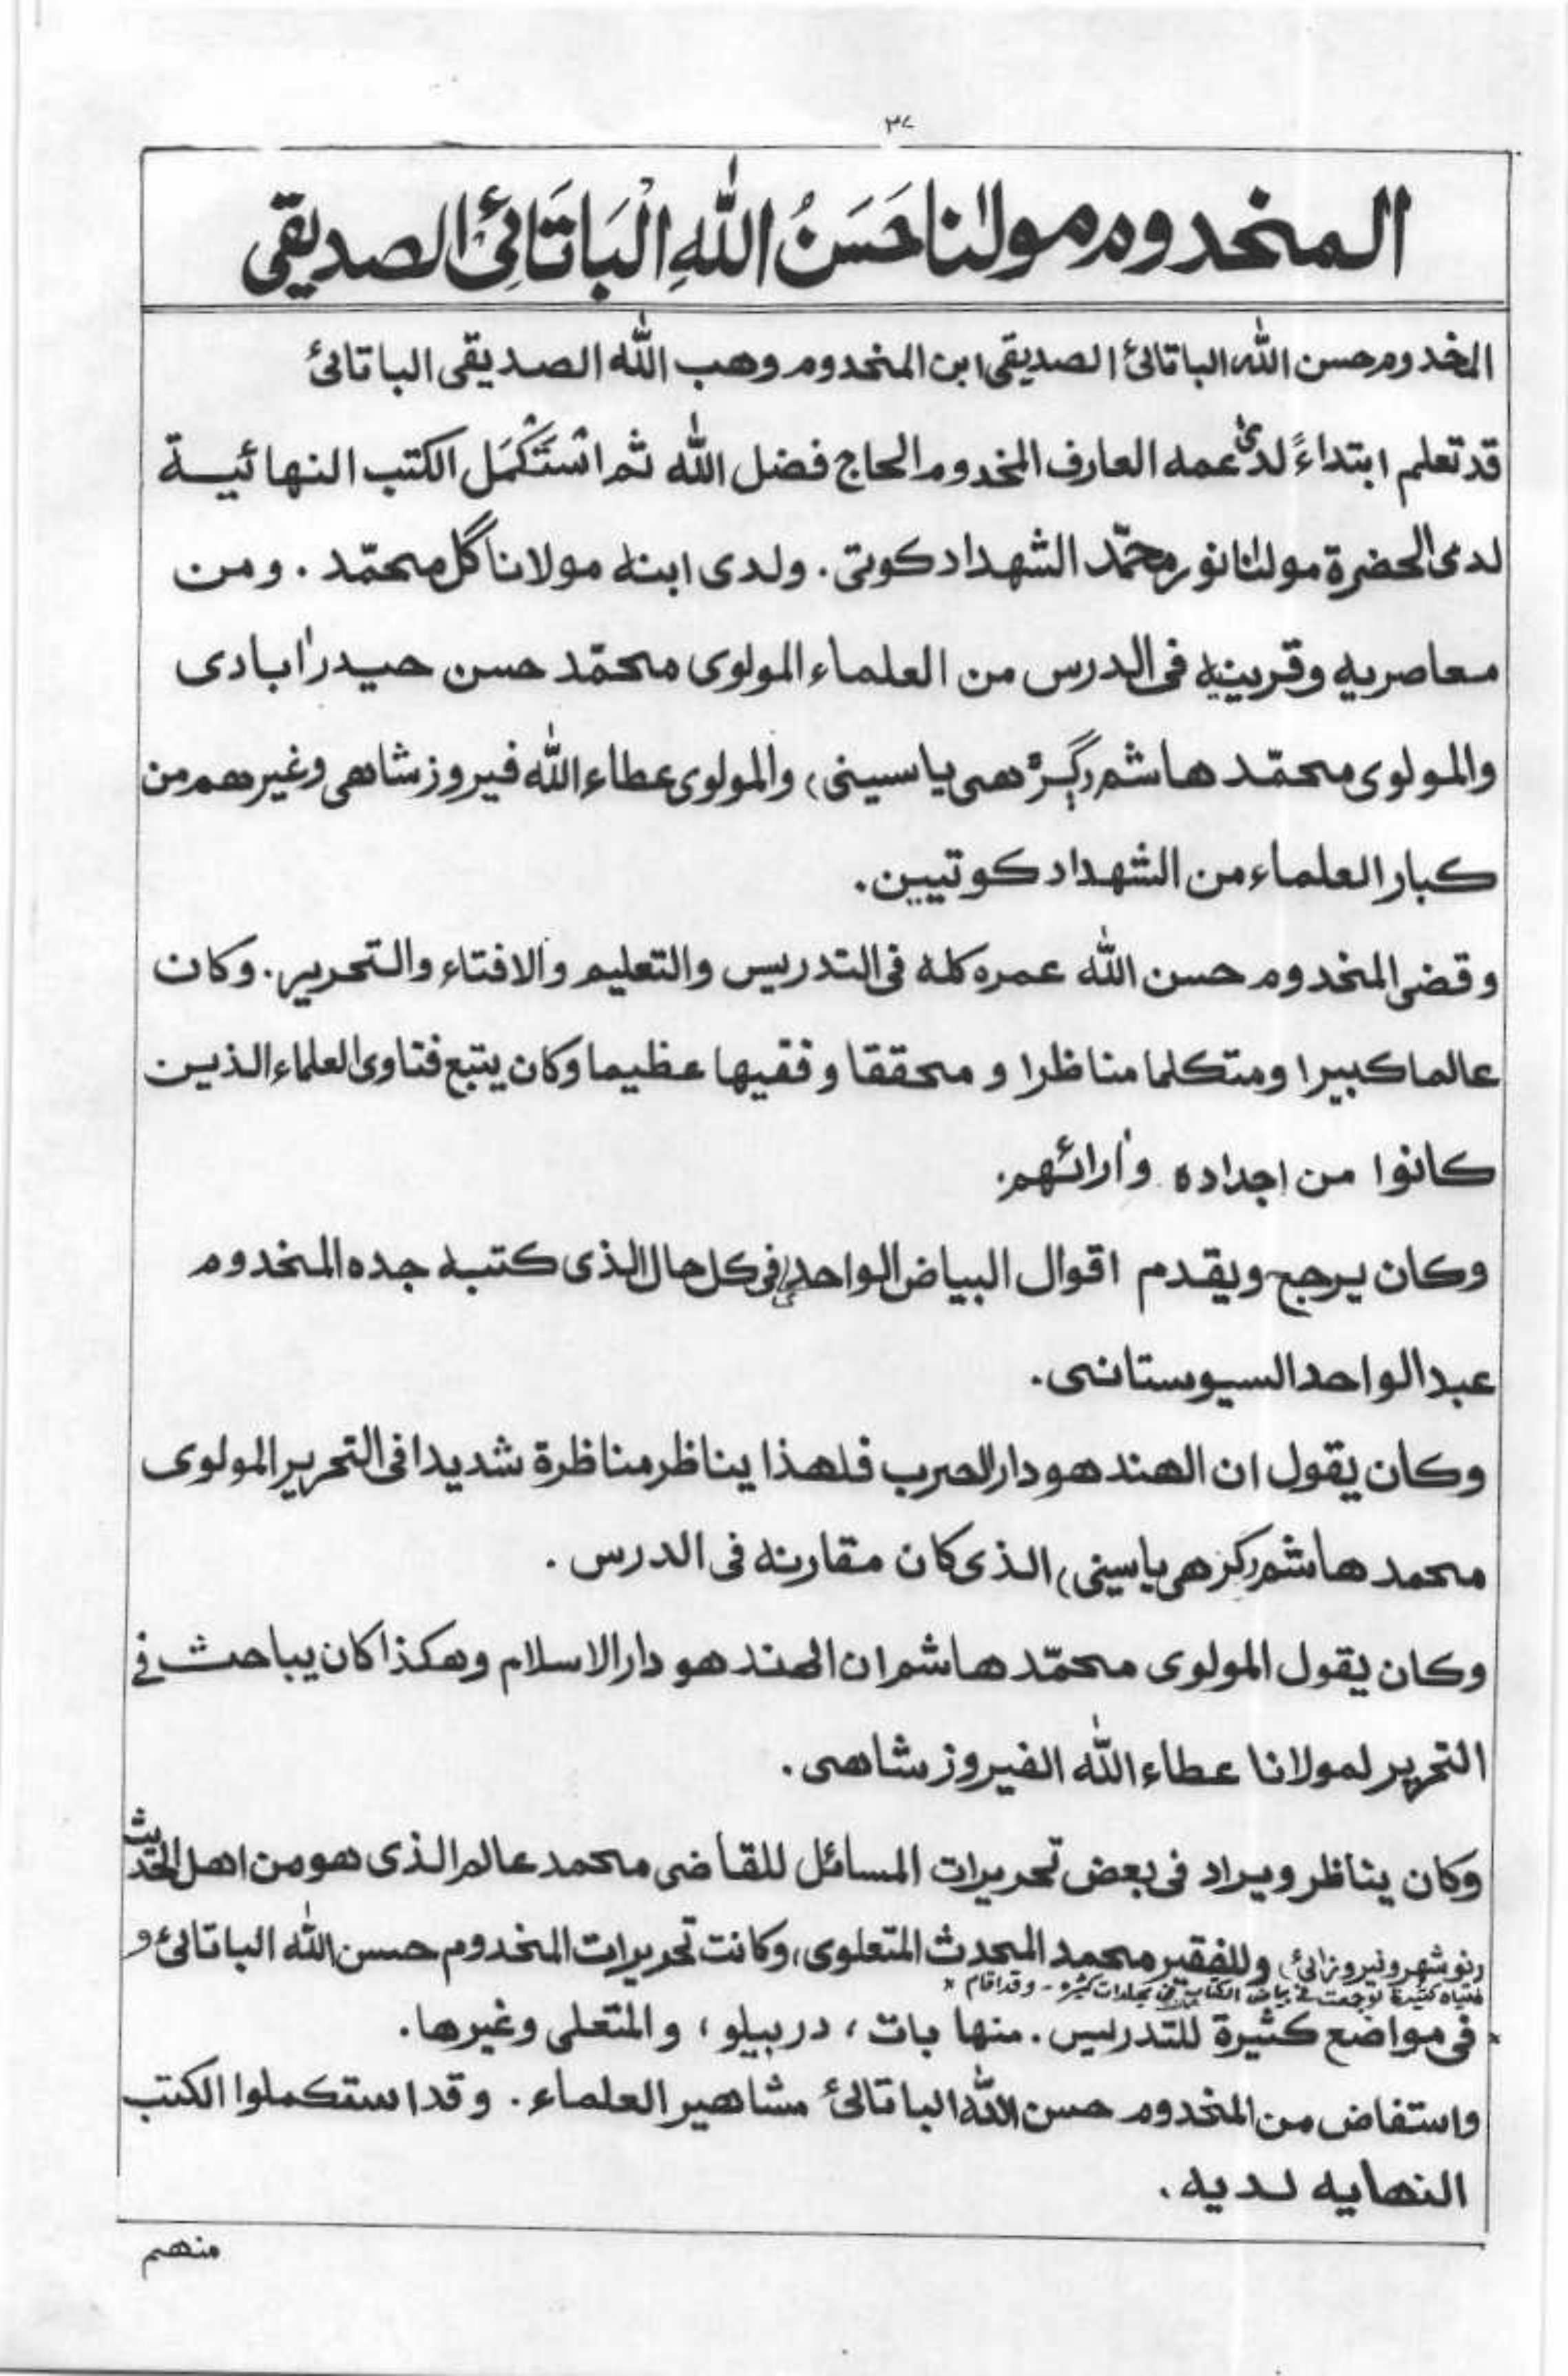 ٣٧
المخدوم مولٰنا حَسَنُ اللّٰهِ الْبَاتَائِئُ الصديقي
المخدوم حسن اللّٰه الباتائئ الصديقي ابن المخدوم وهب اللّٰه الصديقى الباتائئ
قد تعلم ابتداءً لدىٰ عمه العارف المخدوم الحاج فضل اللّٰه ثم اسْتَكْمَل الكتب النهائية
لدى الحضرة مولٰنا نور محمّد الشهداد كوتى . ولدى ابنه مولانا گل محمّد . ومن
معاصريه وقرينيه فى الدرس من العلماء المولوى محمّد حسن حيدراٰبادى
والمولوى محمّد هاشم (گڙهى ياسينى) والمولوى عطاء اللّٰه فيروز شاهى وغيرهم من
كبار العلماء من الشهداد كوتيين .
وقضى المخدوم حسن اللّٰه عمره كله فى التدريس والتعليم والافتاء والتحرير . وكان
عالما كبيرا ومتكلما مناظرا و محققا و فقيها عظيما وكان يتبع فتاوى العلماء الذين
كانوا من اجداده واٰرائهم .
وكان يرجح ويقدم اقوال البياض الواحدى فى كل حال الذى كتبه جده المخدوم
عبد الواحد السيوستانى .
وكان يقول ان الهند هو دار الحرب فلهذا يناظر مناظرة شديدا فى التحرير المولوى
محمد هاشم (گڙهى ياسينى) الذى كان مقارنه فى الدرس .
وكان يقول المولوى محمّد هاشم ان الهند هو دار الاسلام وهكذا كان يباحث فى
التحرير لمولانا عطاء اللّٰه الفيروز شاهى .
وكان يناظر ويراد فى بعض تحريرات المسائل للقاضى محمد عالم الذى هو من اهل الحديث
(نوشهرو نيروزائئ) وللفقير محمد المحدث المتعلوى، وكانت تحريرات المخدوم حسن اللّٰه الباتائئ و
فتياه كثيرة لوجمعت فى بياض الكتاب فى مجلدات كثيره - وقد اقام *
* فى مواضع كثيرة للتدريس . منها بات ، دربيلو ، و المتعلى وغيرها .
واستفاض من المخدوم حسن اللّٰه الباتائئ مشاهير العلماء . وقد استكملوا الكتب
النهايه لديه .
منهم